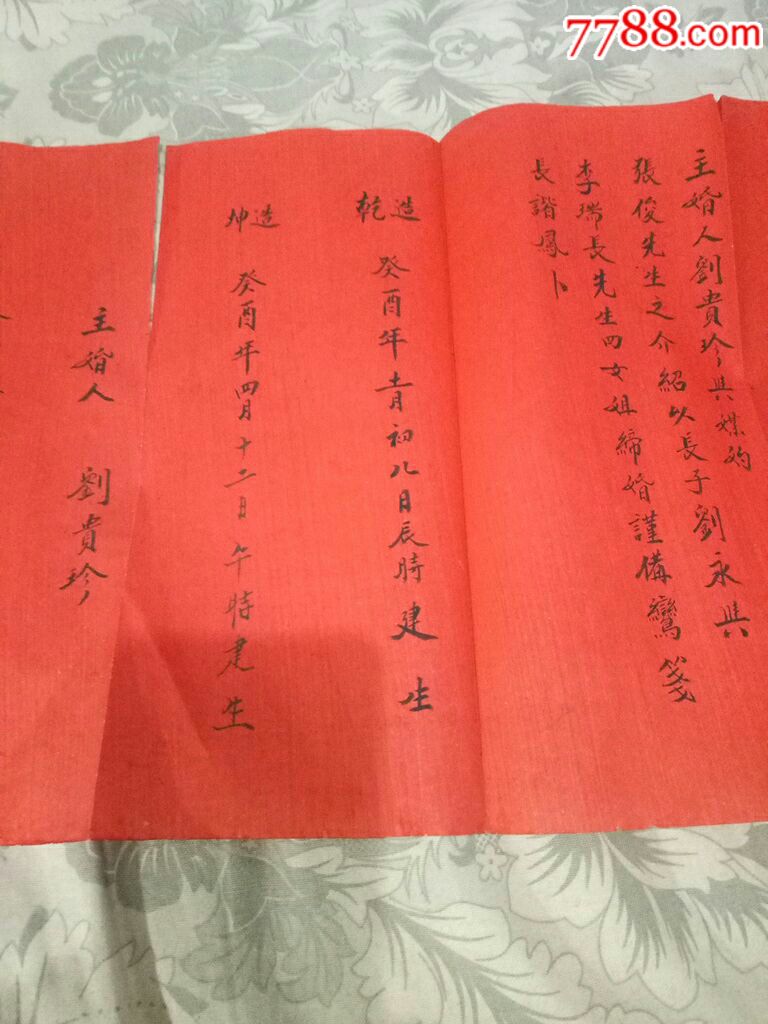 7788.com
主婚人劉貴珍與媒妁
張俊先生之介紹以長子劉永與
李瑞長先生四女姐締婚謹備鸞箋
長諧鳳卜
乾造 癸酉年十一月初八日辰時建生
坤造 癸酉年四月十二日午時建生
主婚人 劉貴珍